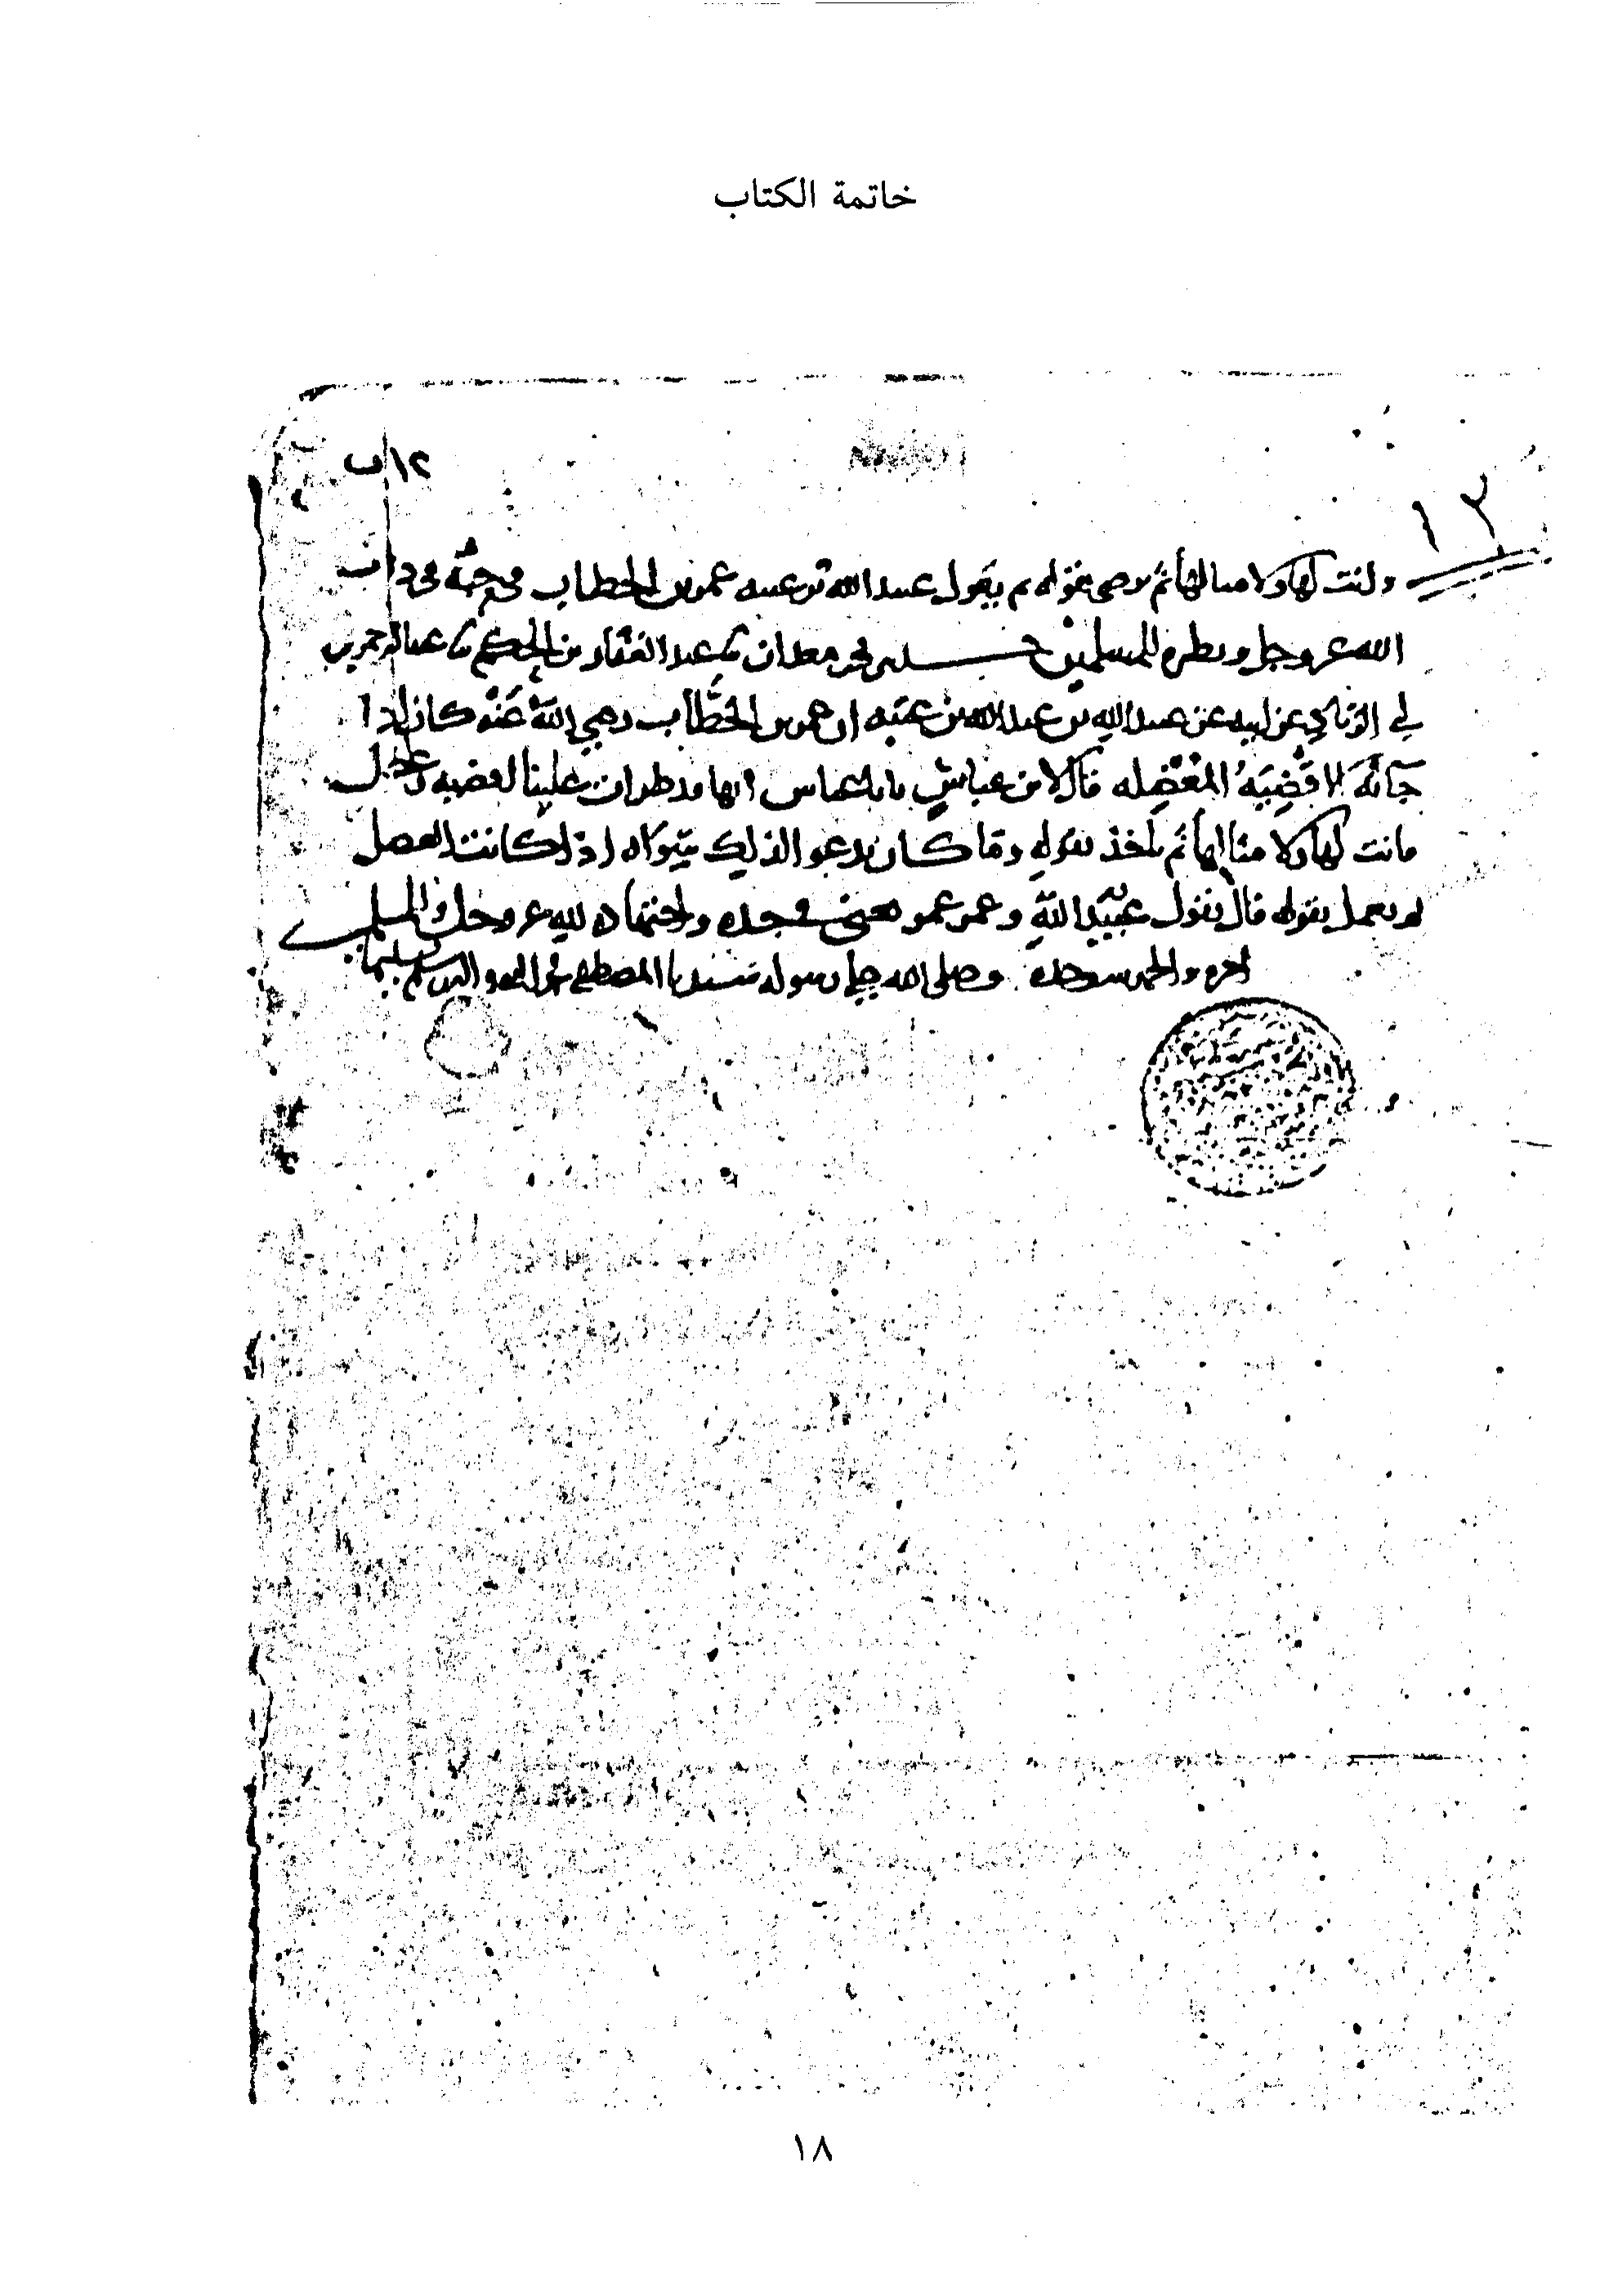 خاتمة الكتاب
١٢/ب
١٢
وانت لها ولامثالها ثم يرضى بقوله ثم يقول عبيد الله بن عتبة عمر بن الخطاب في جده في ذات
الله عز وجل ونظره للمسلمين حدثني محرز معدان عبد الغفار بن الحكم عبد الرحمن بن
ابي الزناد عن ابيه عن عبيد الله بن عبد الله بن عتبه ان عمر بن الخطاب رضي الله عنه كان اذا
جآته الاقضيه المعضله قال لابن عباس انها قد طرات علينا اقضيه
فانت لها ولامثالها ثم ياخذ بقوله وما كان يدعو لذلك سواه اذا كانت العضل
بقوله قال يقول عبيد الله وعمر عمر يعني في جده واجتهاده لله عز وجل وللمسلمين
اخره والحمد لله وحده وصلى الله على رسوله سيدنا المصطفى محمد واله وسلم تسليما
١٨